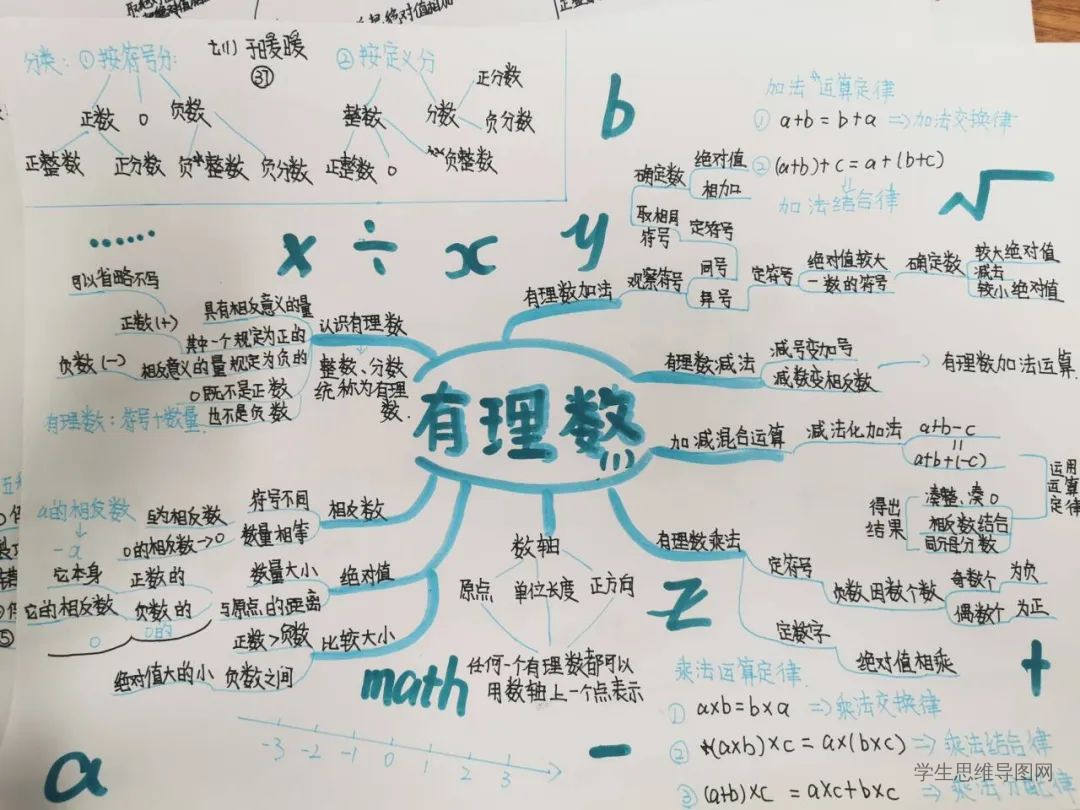 分类：①按符号分：
七(1) 于暖暖
㊲
②按定义分
正数 0 负数
正整数 正分数 负整数 负分数
整数 分数
正分数
负分数
正整数 0 负整数
b
加法运算定律
① a+b=b+a ⇒加法交换律
② (a+b)+c=a+(b+c)
⇓
加法结合律
√
......
× ÷ x y
有理数(1)
有理数加法
观察符号
同号
异号
定符号
取相同
符号
确定数
绝对值
相加
定符号
绝对值较大
一数的符号
确定数
较大绝对值
减去
较小绝对值
有理数减法
减号变加号
减数变相反数
有理数加法运算
加减混合运算
减法化加法
a+b-c
=
a+b+(-c)
运用
运算
定律
凑整、凑0
相反数结合
同分母分数
得出
结果
有理数乘法
定符号
负数因数个数
奇数个 为负
偶数个 为正
定数字
绝对值相乘
乘法运算定律
① a×b=b×a ⇒乘法交换律
② (a×b)×c=a×(b×c) ⇒乘法结合律
③ (a+b)×c=a×c+b×c ⇒乘法分配律
z
+
-
数轴
原点 单位长度 正方向
任何一个有理数都可以
用数轴上一个点表示
math
-3 -2 -1 0 1 2 3
a
认识有理数
整数、分数
统称为有理
数.
具有相反意义的量
其中一个规定为正的
相反意义的量规定为负的
0既不是正数
也不是负数
可以省略不写
正数(+)
负数(-)
有理数：符号+数量
相反数
符号不同
数量相等
0的相反数→0
a的相反数
↓
-a
绝对值
数量大小
与原点的距离
正数的
它本身
负数的
它的相反数
0的
0
比较大小
正数>负数
负数之间
绝对值大的小
⑤
学生思维导图网